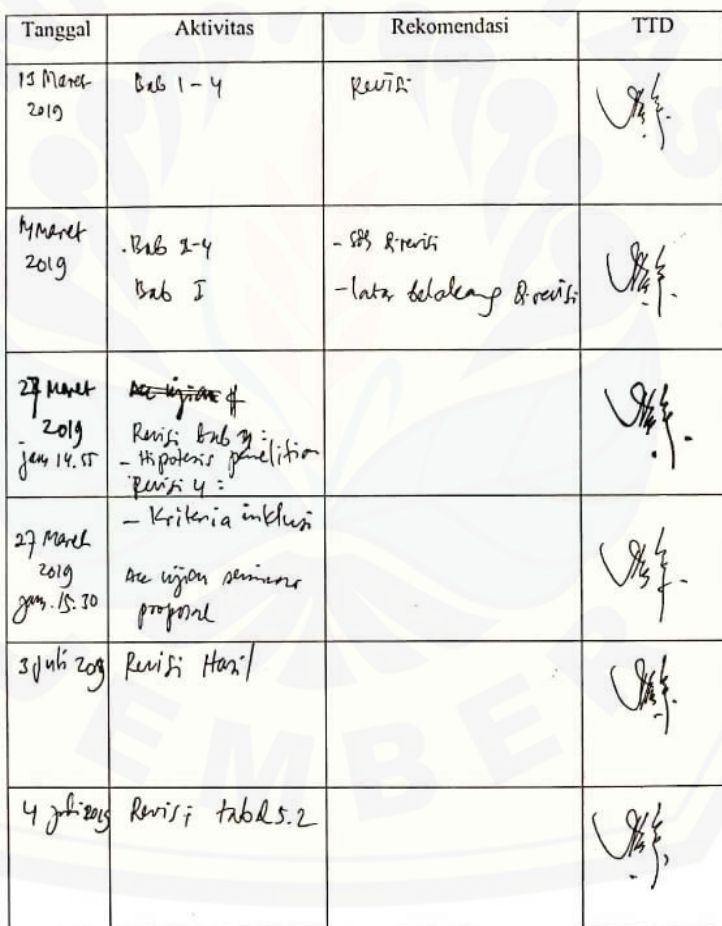 Tanggal Aktivitas Rekomendasi TTD
13 Maret Bab 1 - 4 Revisi
2019
14 Maret
2019
. Bab 2-4
Bab I
- sdh direvisi
- latar belakang direvisi
27 Maret
2019
jam 14.55
Acc ujian
Revisi bab 3 :
- Hipotesis penelitian
Revisi 4 :
- Kriteria inklusi
27 Maret
2019
jam. 15.30
Acc ujian seminar
proposal
3 Juli 2019 Revisi Hasil
4 Juli 2019 Revisi tabel 5.2
JEMBER